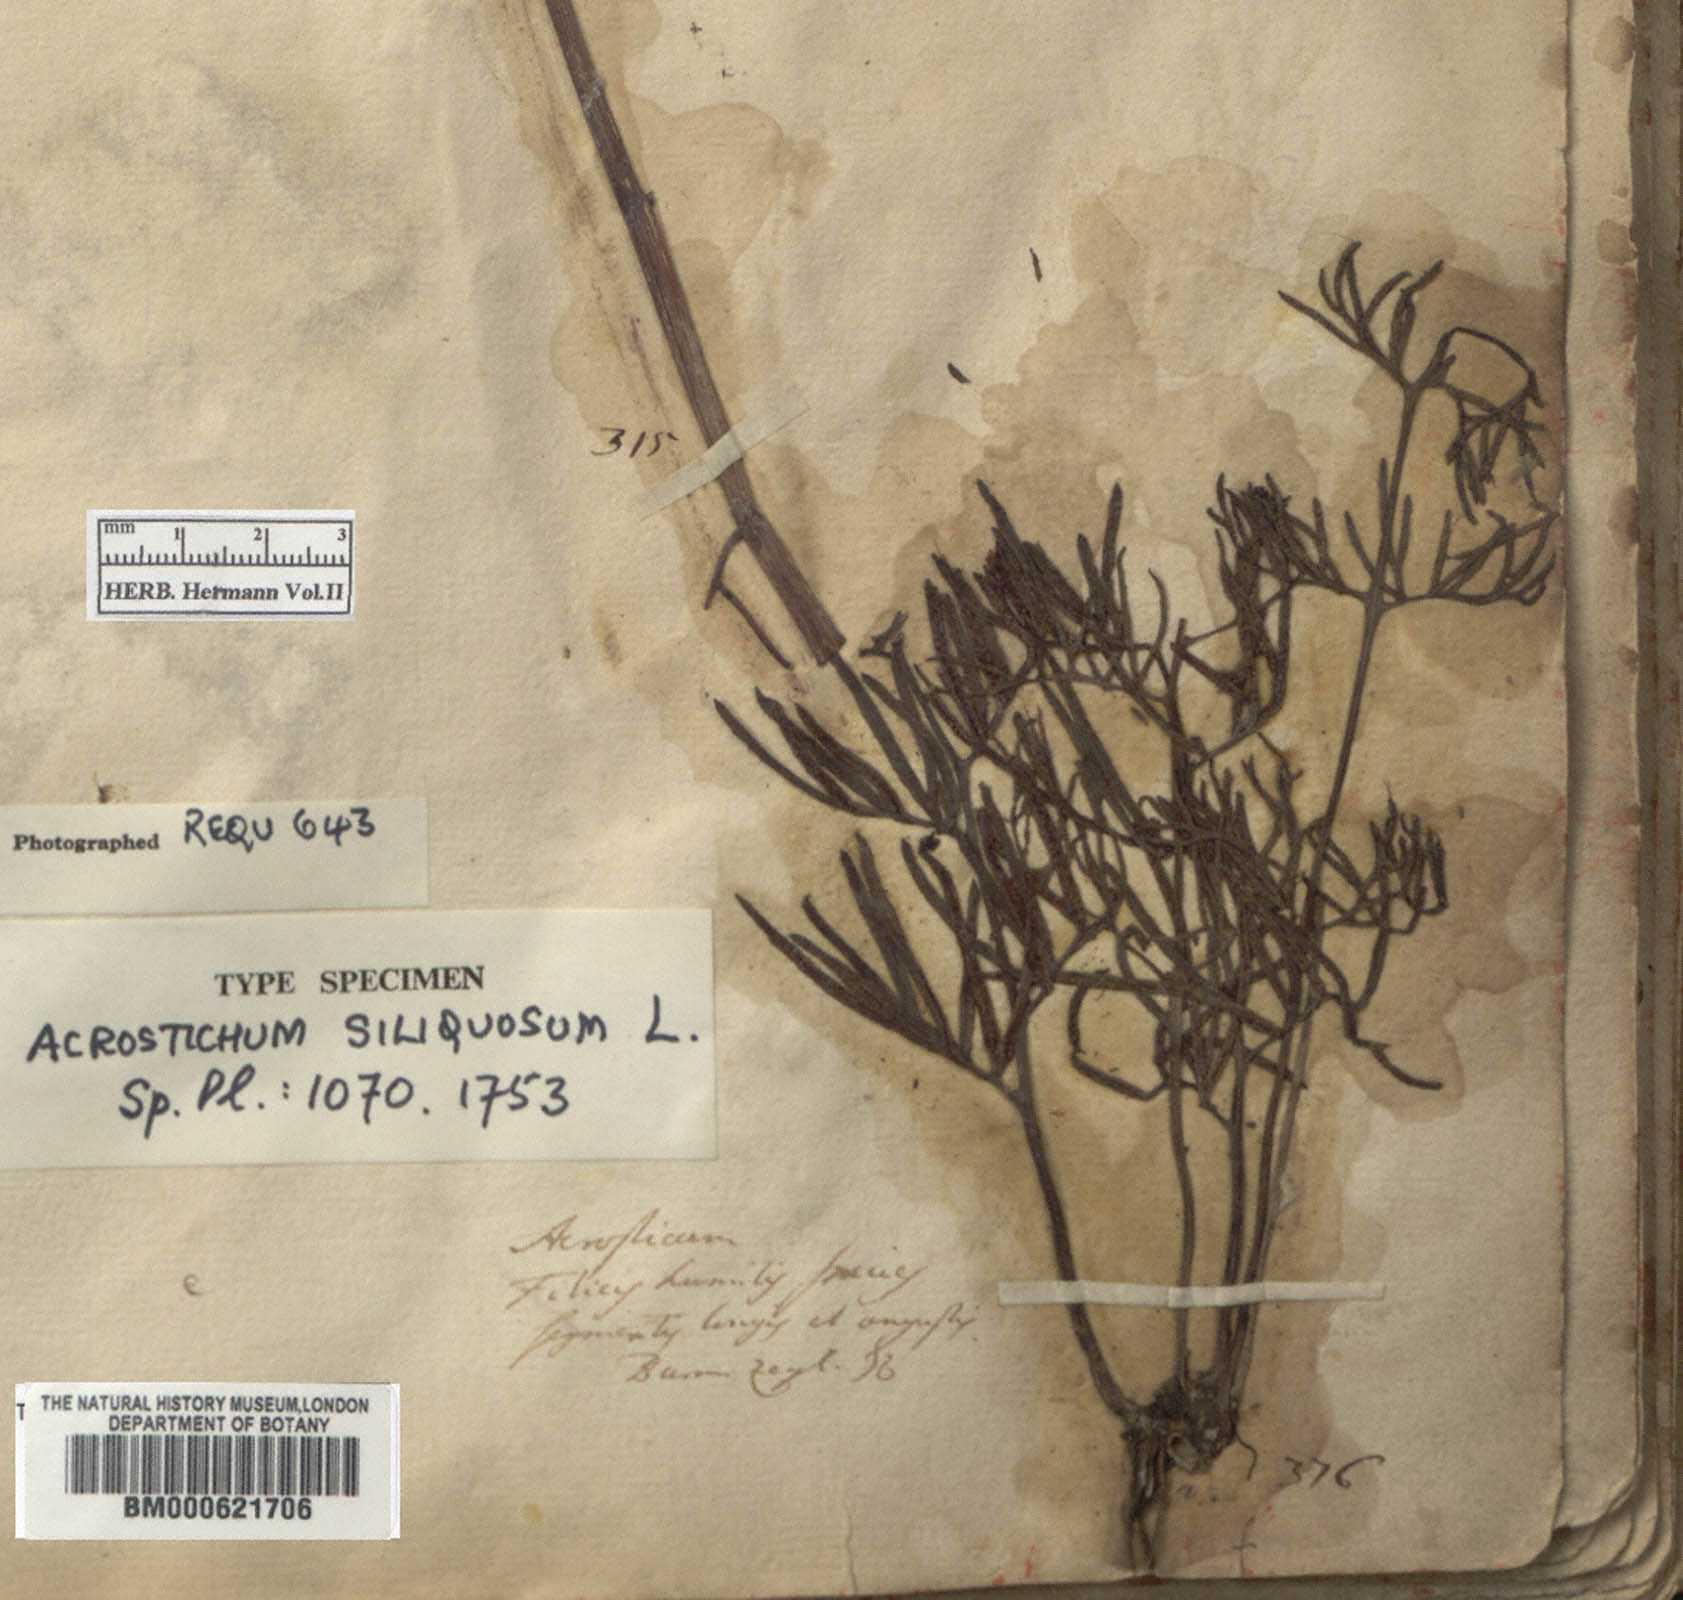 315
mm 1 2 3
HERB. Hermann Vol.II
Photographed REQU 643
TYPE SPECIMEN
ACROSTICHUM SILIQUOSUM L.
Sp. Pl.: 1070. 1753
Acrosticum
Filicis humilis species
segmentis longis et angustis.
Burm zeyl. 96
e
T
THE NATURAL HISTORY MUSEUM,LONDON
DEPARTMENT OF BOTANY
BM000621706
376